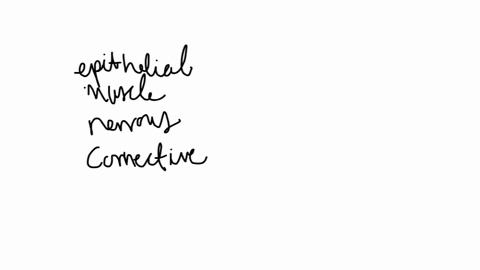 epithelial
muscle
nervous
Connective